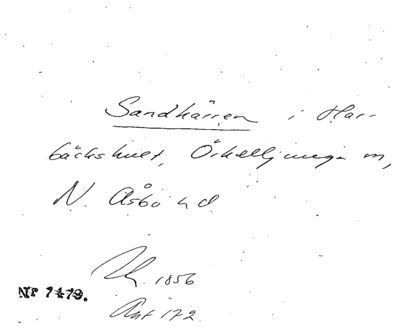 Sandkärren i Har-
bäckshult, Örkelljunga sn,
N. Åsbo hd.
1856
Nr 7479.
Akt 172